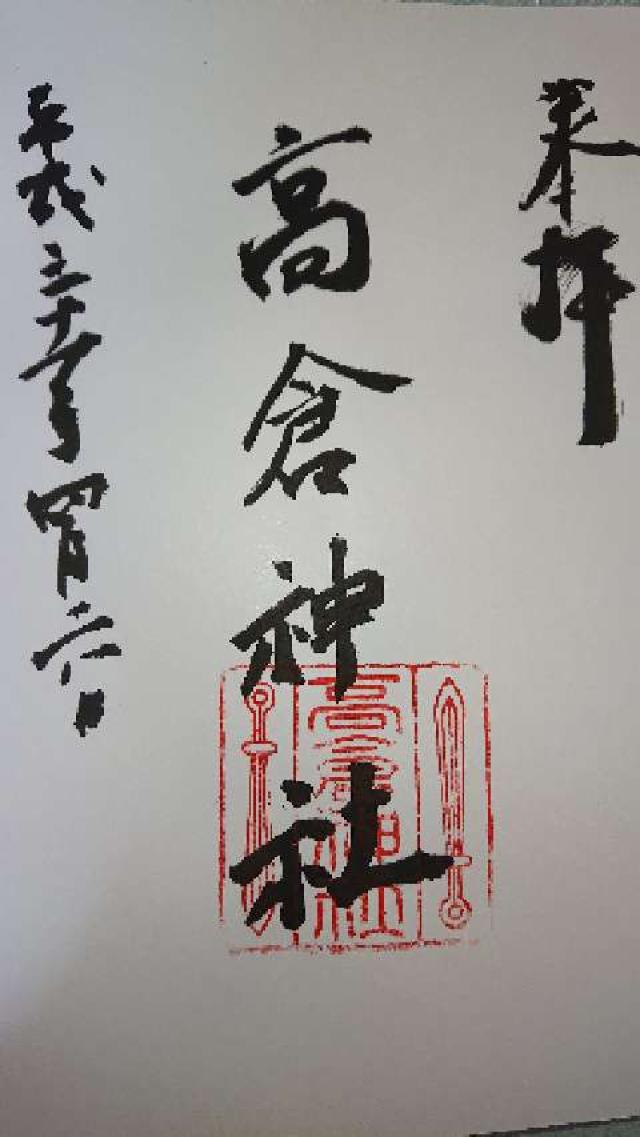 奉拝
高倉神社
高倉神社
平成三十一年四月六日